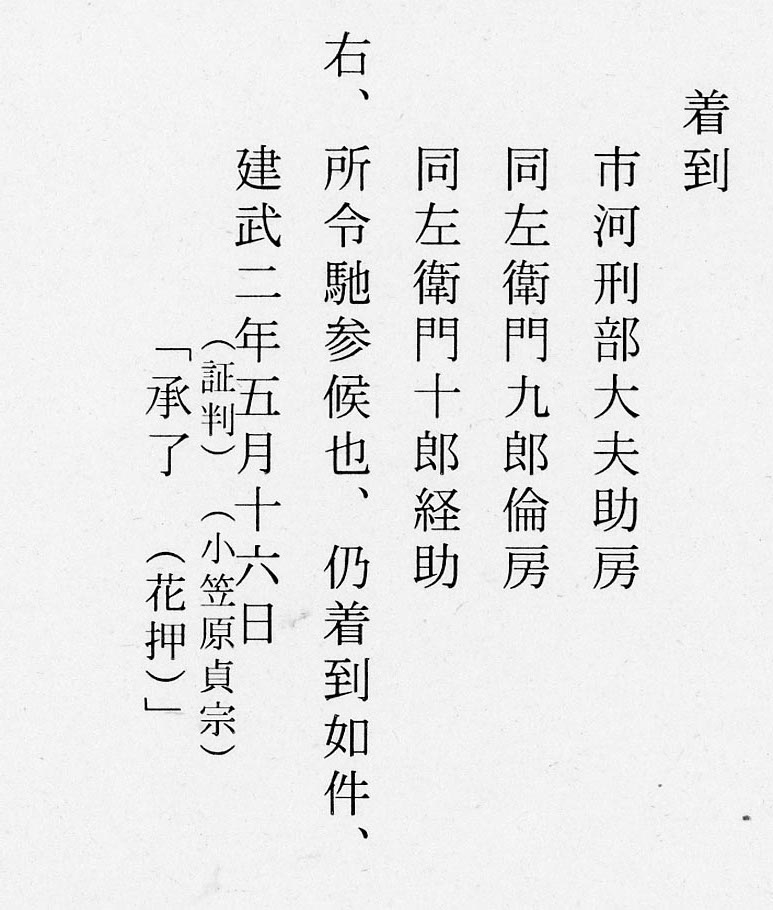 着到
市河刑部大夫助房
同左衛門九郎倫房
同左衛門十郎経助
右、所令馳参候也、仍着到如件、
建武二年五月十六日
（証判）（小笠原貞宗）
「承了　（花押）」